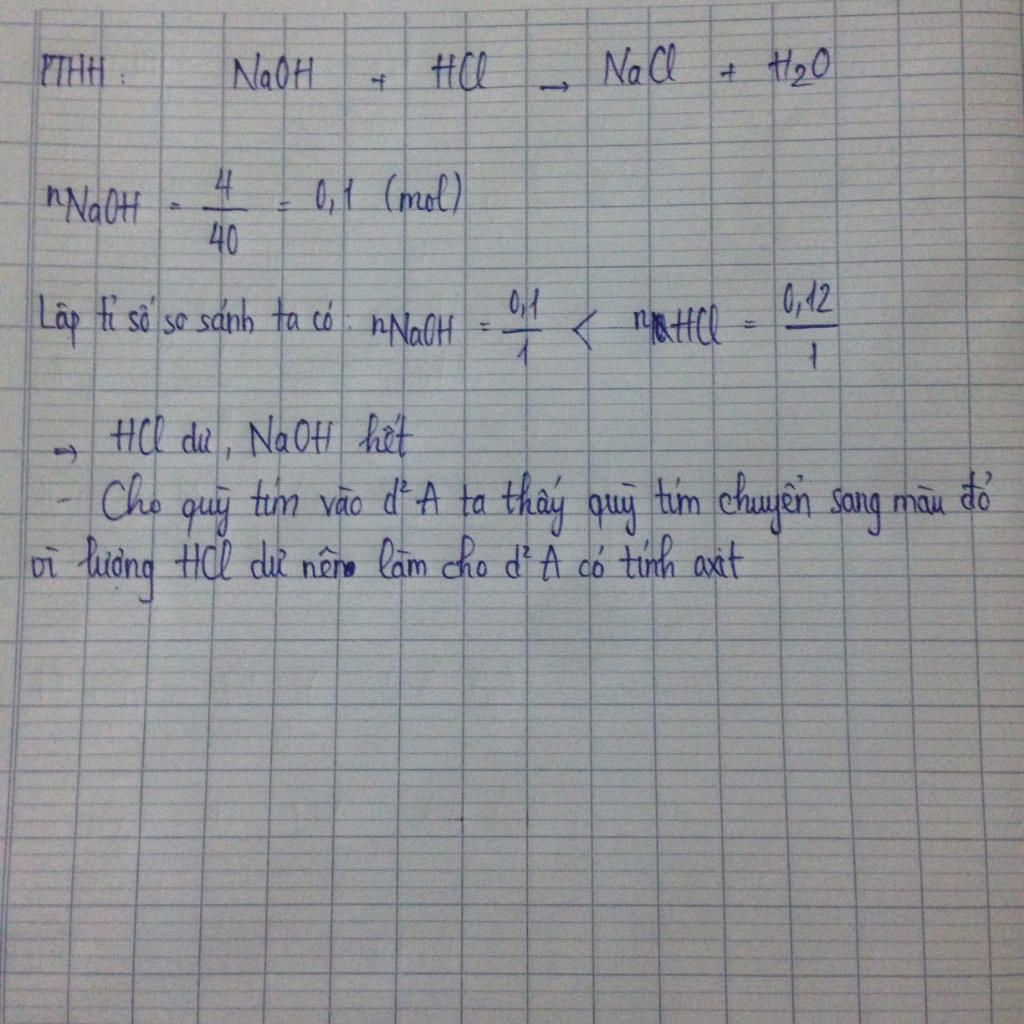 PTHH : NaOH + HCl → NaCl + H2O
nNaOH = 4/40 = 0,1 (mol)
Lập tỉ số so sánh ta có : nNaOH = 0,1/1 < nHCl = 0,12/1
→ HCl dư, NaOH hết
- Cho quỳ tím vào d² A ta thấy quỳ tím chuyển sang màu đỏ
vì lượng HCl dư nên làm cho d² A có tính axit